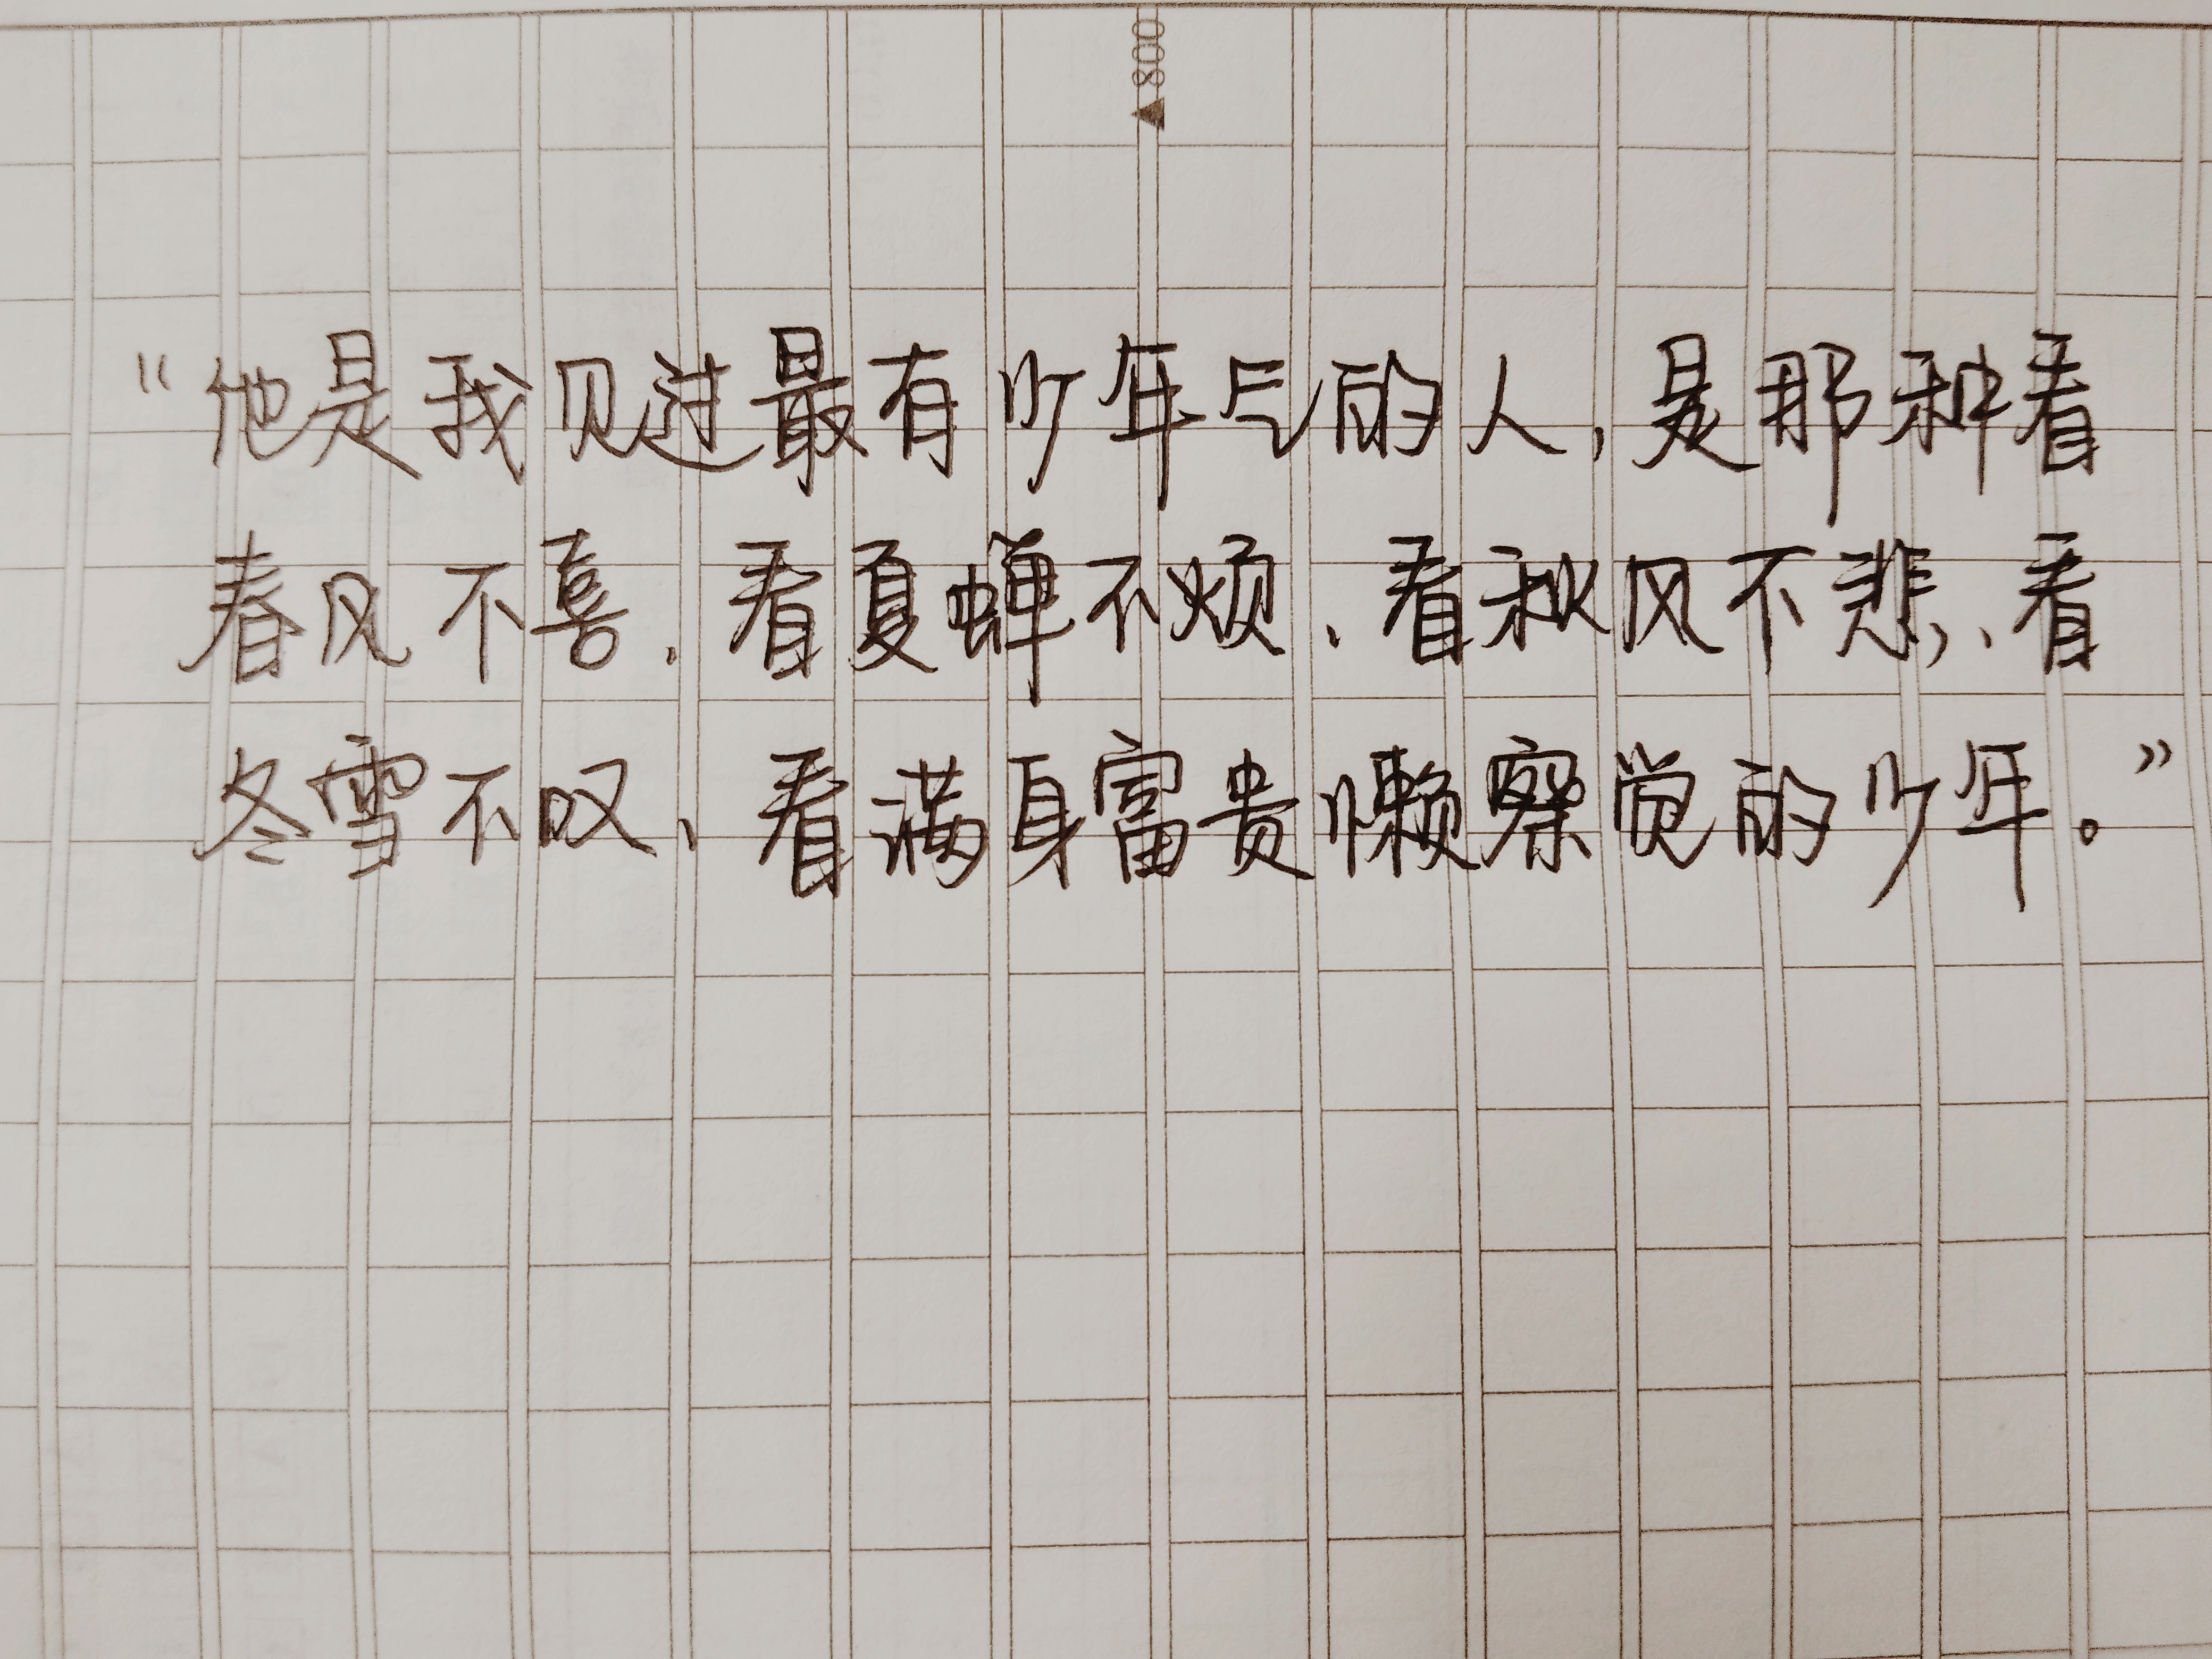 800
“他是我见过最有少年气的人,是那种看
春风不喜、看夏蝉不烦、看秋风不悲,、看
冬雪不叹、看满身富贵懒察觉的少年。”